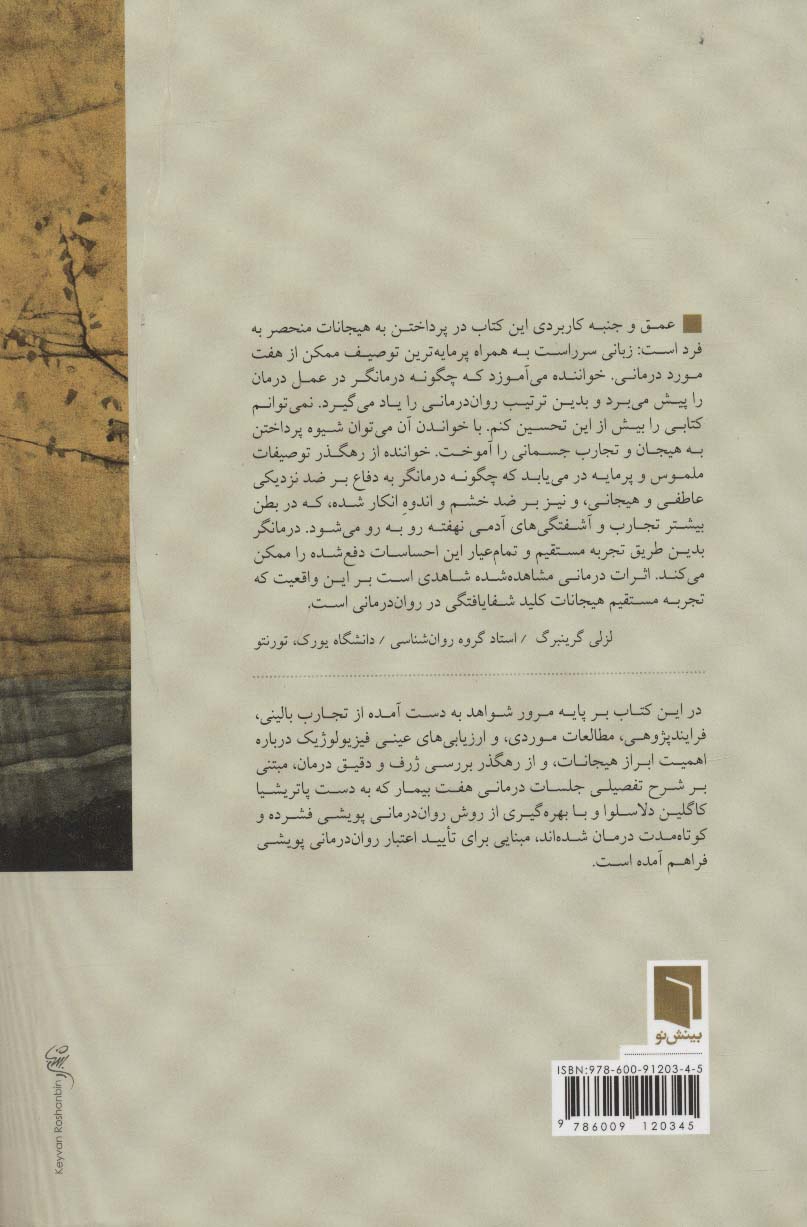 عمق و جنبه کاربردی این کتاب در پرداختن به هیجانات منحصر به
فرد است: زبانی سرراست به همراه پرمایه‌ترین توصیف ممکن از هفت
مورد درمانی. خواننده می‌آموزد که چگونه درمانگر در عمل درمان
را پیش می‌برد و بدین ترتیب روان‌درمانی را یاد می‌گیرد. نمی‌توانم
کتابی را بیش از این تحسین کنم. با خواندن آن می‌توان شیوه پرداختن
به هیجان و تجارب جسمانی را آموخت. خواننده از رهگذر توصیفات
ملموس و پرمایه در می‌یابد که چگونه درمانگر به دفاع بر ضد نزدیکی
عاطفی و هیجانی، و نیز بر ضد خشم و اندوهِ انکار شده، که در بطن
بیشتر تجارب و آشفتگی‌های آدمی نهفته رو به رو می‌شود. درمانگر
بدین طریق تجربه مستقیم و تمام‌عیار این احساسات دفع‌شده را ممکن
می‌کند. اثرات درمانی مشاهده‌شده شاهدی است بر این واقعیت که
تجربه مستقیم هیجانات کلید شفایافتگی در روان‌درمانی است.
لزلی گرینبرگ / استاد گروه روان‌شناسی / دانشگاه یورک، تورنتو
در این کتاب بر پایه مرور شواهد به دست آمده از تجارب بالینی،
فرایندپژوهی، مطالعات موردی، و ارزیابی‌های عینی فیزیولوژیک درباره
اهمیت ابراز هیجانات، و از رهگذر بررسی ژرف و دقیق درمان، مبتنی
بر شرح تفصیلی جلسات درمانی هفت بیمار که به دست پاتریشیا
کاگلین دلاسلوا و با بهره‌گیری از روش روان‌درمانی پویشی فشرده و
کوتاه‌مدت درمان شده‌اند، مبنایی برای تأیید اعتبار روان‌درمانی پویشی
فراهم آمده است.
بینش‌نو
ISBN:978-600-91203-4-5
9 786009 120345
Keyvan Roshanbin